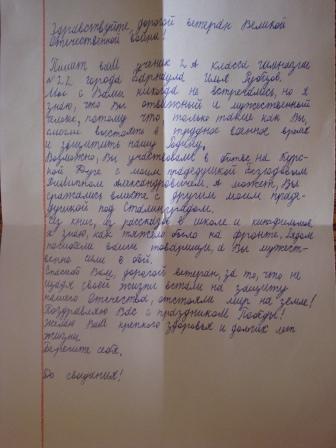 Здравствуйте, дорогой ветеран Великой
Отечественной войны!
Пишет вам ученик 2 А класса гимназии
№ 22 города Барнаула Илья
Мы с Вами никогда не встречались, но я
знаю, что Вы отважный и мужественный
человек, потому что только такие как Вы,
смогли выстоять в трудное военное время
и защитить нашу Родину.
Возможно, Вы участвовали в битве на Курс-
кой Дуге с моим прадедушкой
Александровичем. А может, Вы
сражались вместе с другим моим праде-
душкой под Сталинградом.
Из книг, из рассказов в школе и кинофильмов
я знаю, как тяжело было на фронте. Рядом
погибали ваши товарищи, а Вы мужест-
венно шли в бой.
Спасибо Вам, дорогой ветеран, за то, что не
щадя своей жизни встали на защиту
нашего Отечества, отстояли мир на земле!
Поздравляю Вас с праздником Победы!
Желаю Вам крепкого здоровья и долгих лет
жизни.
Берегите себя.
До свидания!